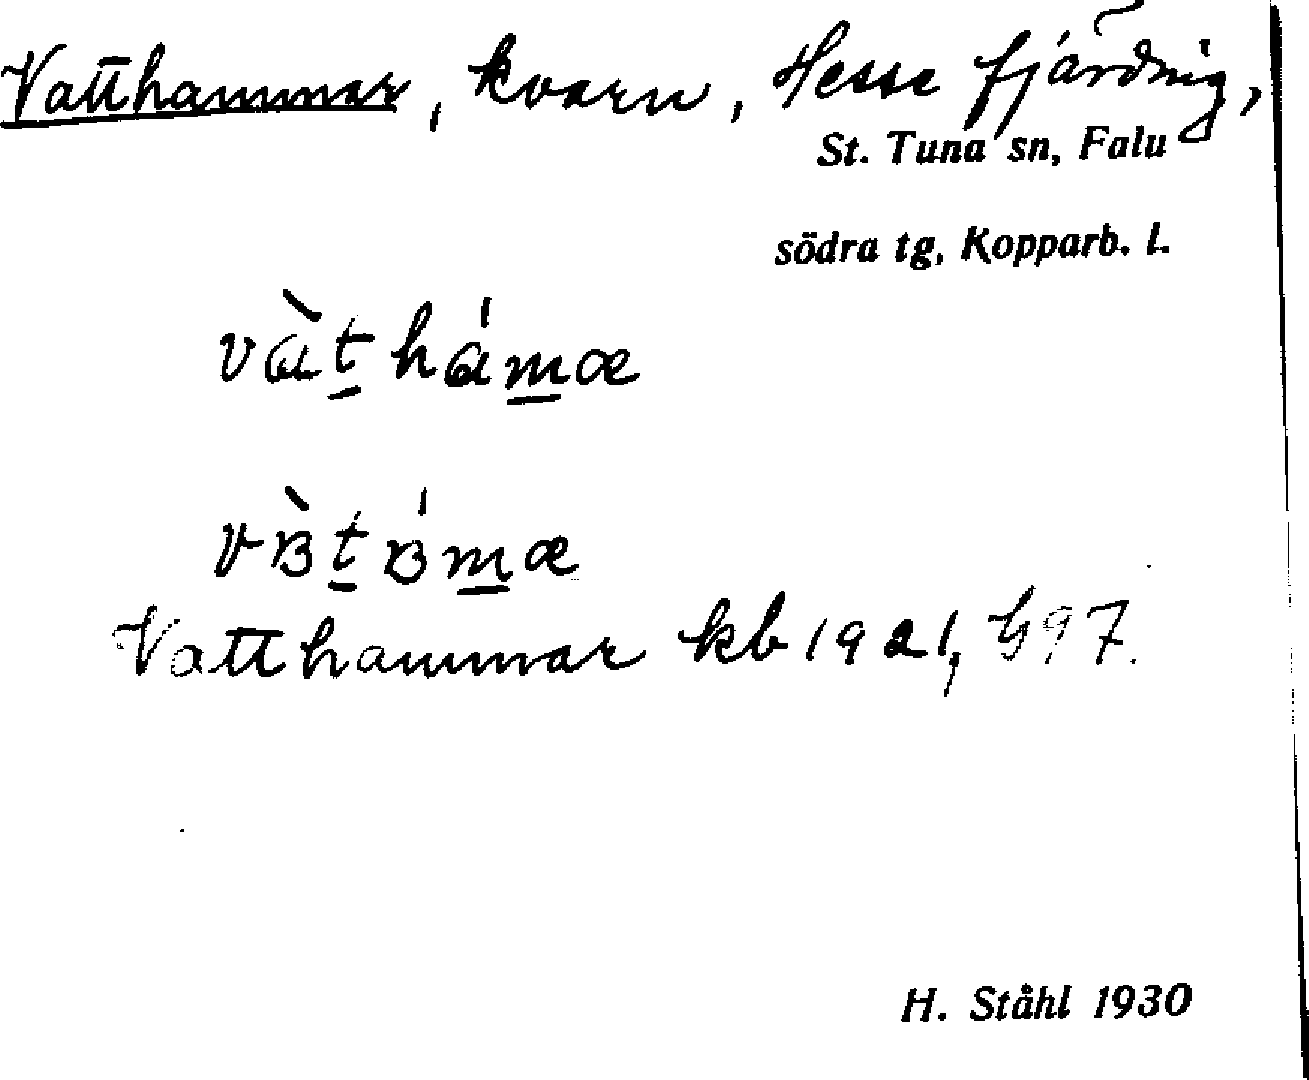 Vatthammar, kvarn, Hesse fjärding,
St. Tuna sn, Falu
södra tg, Kopparb. l.
vàt̠hám̠æ
vʙ̀t̠ʙ́m̠æ
Vatthammar kb 1921, 597.
H. Ståhl 1930